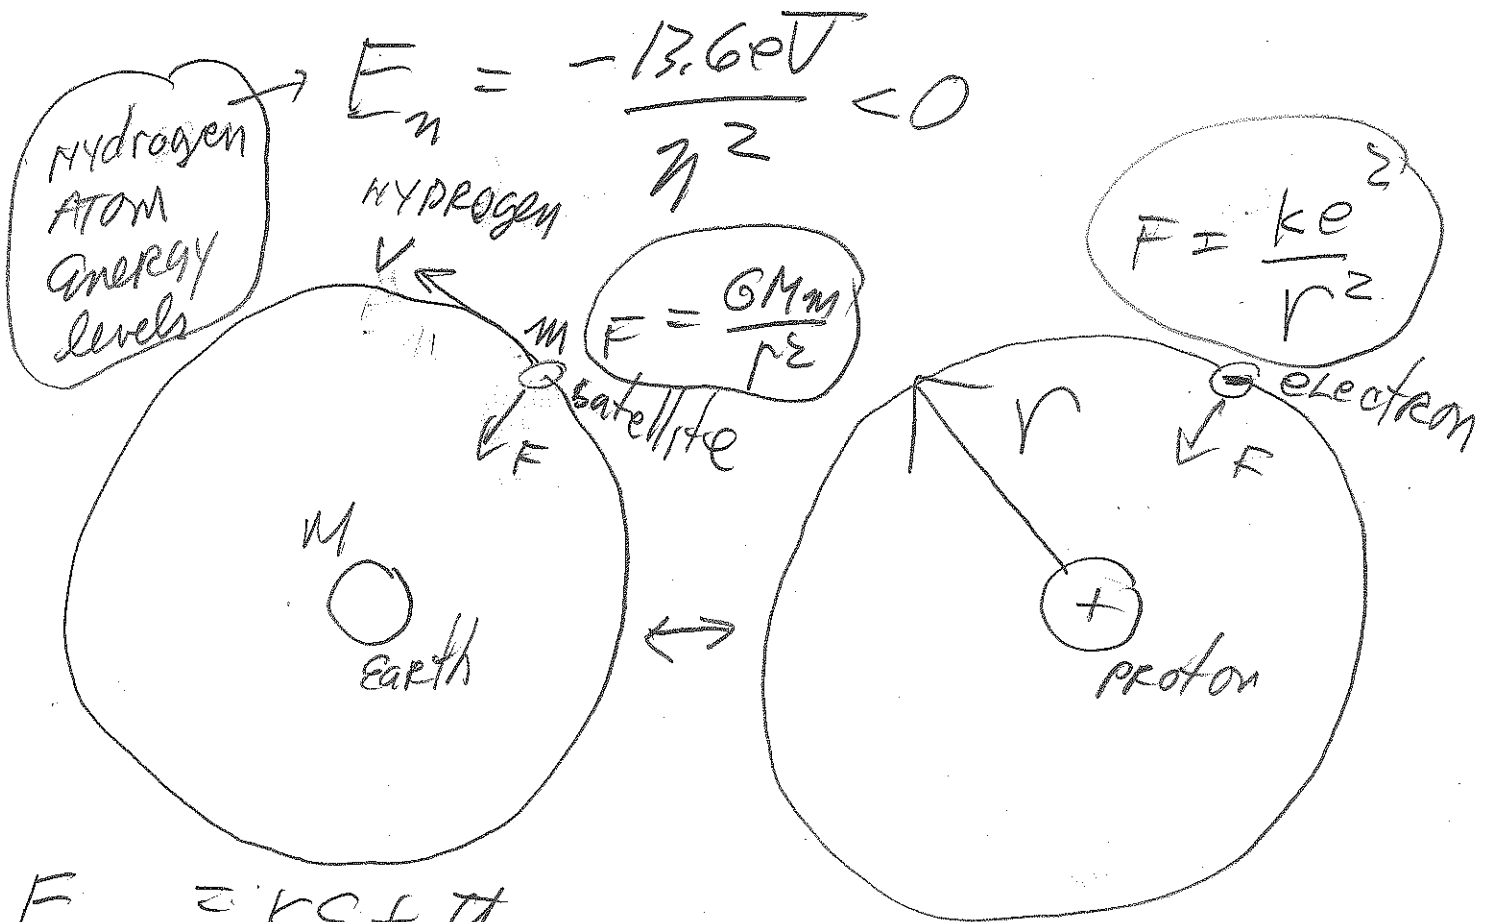 Hydrogen
Atom
energy
levels
E_n = -13.6eV / n^2 < 0
HYDROgen
V
m
satellite
F
F = GMm / r^2
M
Earth
F = ke^2 / r^2
r
- electron
F
+
proton